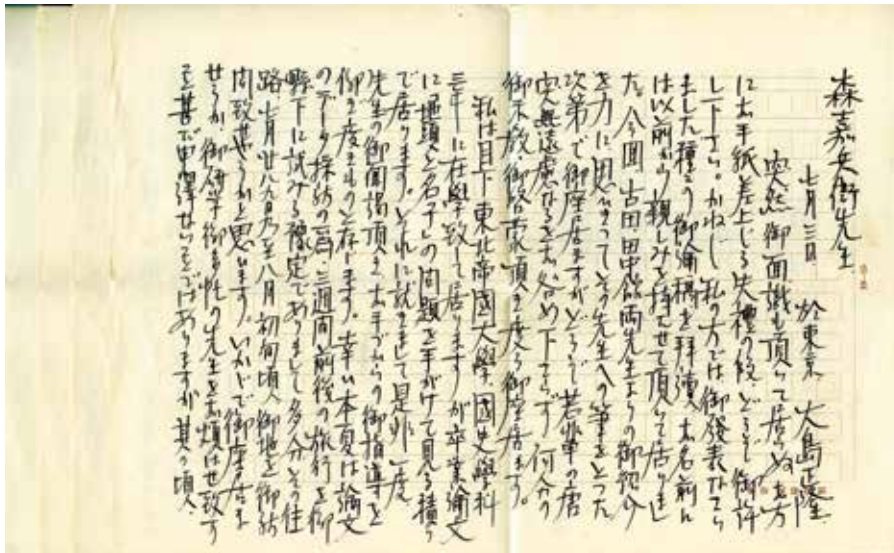 森嘉兵衛先生
七月三日 於東京 大島正隆
突然御面識も頂いて居らぬ貴方
にお手紙差上じる失禮の段どうぞ御許
し下さい。かねがね私の方では御發表なさら
ました種々の御論稿を拝讀、お名前に
は以前から親しみを持たせて頂いて居りまし
た。今回古田、田中館両先生よりの御紹介
を力に思いきってその先生への筆をとった
次第で御座居ますがどうぞ若輩の唐
突無遠慮なるをお咎め下さらず 何分の
御示教、御啓示頂き度う御座居ます。
私は目下東北帝國大學國史學科
三年に在學致して居りますが卒業論文
に「地頭と名子」の問題を手がけて見る積り
で居ります。それに就きまして是非一度
先生の御面謁頂き、お手づからの御指導を
仰ぎ度きものと存じます。幸い本夏は論文
のデータ採訪の爲、三週間前後の旅行を御
縣下に試みる豫定でありまして多分その往
路、七月廿八、九日乃至八月初旬頃、御地を御訪
問致せやうかと思います。いかがで御座居ま
せうか、御研学御多忙の先生をお煩はせ致す
こと甚だ申譯ないことではありますが其の頃、